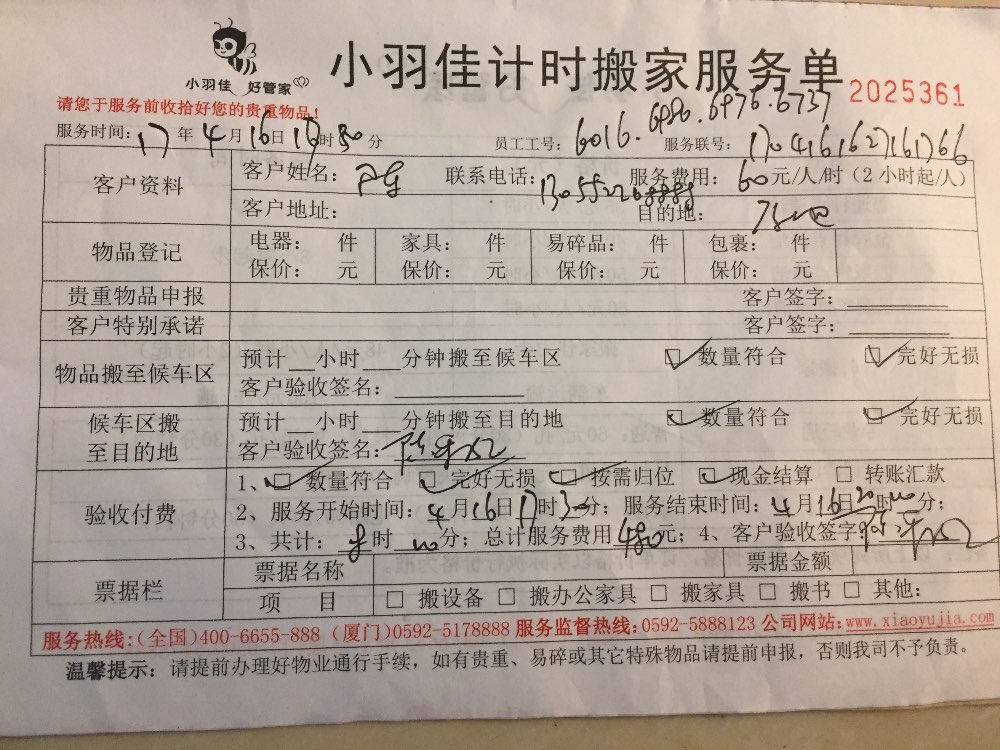 小羽佳 好管家
小羽佳计时搬家服务单 2025361
请您于服务前收拾好您的贵重物品!
服务时间: 17 年 4 月 16 日 时 30 分 员工工号: 6016. 6986. 6976. 6737 服务联号: 1704161627161766
客户资料 客户姓名: 联系电话: 服务费用: 60 元/人/时 (2 小时起/人)
客户地址: 目的地:
物品登记 电器: 件 家具: 件 易碎品: 件 包裹: 件
保价: 元 保价: 元 保价: 元 保价: 元
贵重物品申报 客户签字:
客户特别承诺 客户签字:
物品搬至候车区 预计__小时___分钟搬至候车区 数量符合 完好无损
客户验收签名:
候车区搬至目的地 预计__小时___分钟搬至目的地 数量符合 完好无损
客户验收签名:
验收付费 1、 数量符合 完好无损 按需归位 现金结算 转账汇款
2、服务开始时间: 4 月 16 日 17 时 30 分; 服务结束时间: 4 月 16 日 时 分;
3、共计: 8 时 分; 总计服务费用 480 元; 4、客户验收签字
票据栏 票据名称 票据金额
项 目 搬设备 搬办公家具 搬家具 搬书 其他:
服务热线:(全国)400-6655-888 (厦门)0592-5178888 服务监督热线:0592-5888123 公司网站:www.xiaoyujia.com
温馨提示: 请提前办理好物业通行手续, 如有贵重、易碎或其它特殊物品请提前申报, 否则我司不予负责。